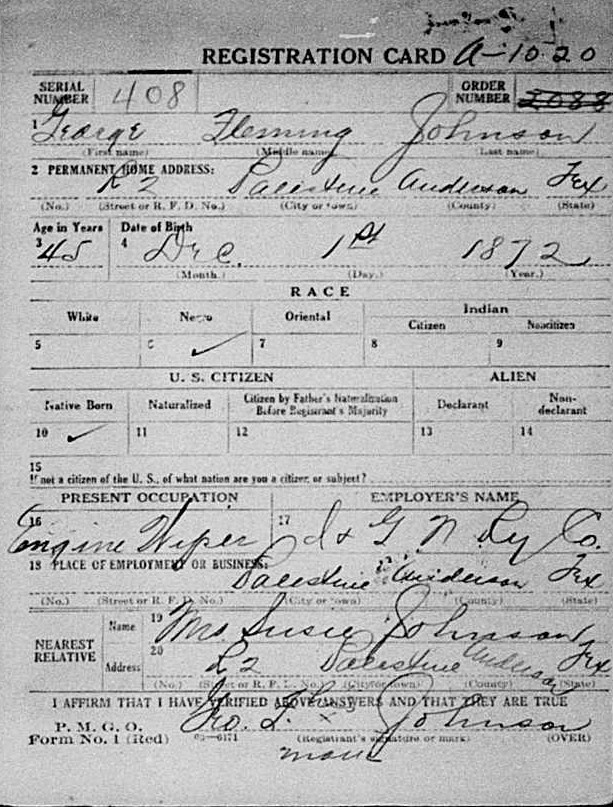 REGISTRATION CARD A-10-20
SERIAL NUMBER 408 ORDER NUMBER 2088
1 George Fleming Johnson
(First name) (Middle name) (Last name)
2 PERMANENT HOME ADDRESS:
R 2 Palestine Anderson Tex
(No.) (Street or R. F. D. No.) (City or town) (County) (State)
Age in Years Date of Birth
3 45 4 Dec. 1st 1872
(Month.) (Day.) (Year.)
RACE
White Negro Oriental Indian
Citizen Noncitizen
5 6 ✓ 7 8 9
U. S. CITIZEN ALIEN
Native Born Naturalized Citizen by Father's Naturalization Before Registrant's Majority Declarant Non-declarant
10 ✓ 11 12 13 14
15
If not a citizen of the U. S., of what nation are you a citizen or subject?
PRESENT OCCUPATION EMPLOYER'S NAME
16 Engine Wiper 17 I & G N Ry Co.
18 PLACE OF EMPLOYMENT OR BUSINESS:
Palestine Anderson Tex
(No.) (Street or R. F. D. No.) (City or town) (County) (State)
NEAREST RELATIVE
Name 19 Mrs. Susie Johnson
Address 20 R 2 Palestine Anderson Tex
(No.) (Street or R. F. D. No.) (City or town) (County) (State)
I AFFIRM THAT I HAVE VERIFIED ABOVE ANSWERS AND THAT THEY ARE TRUE
P. M. G. O.
Form No. 1 (Red) 03—6171 Geo. F. x Johnson
(Registrant's signature or mark) (OVER)
mark